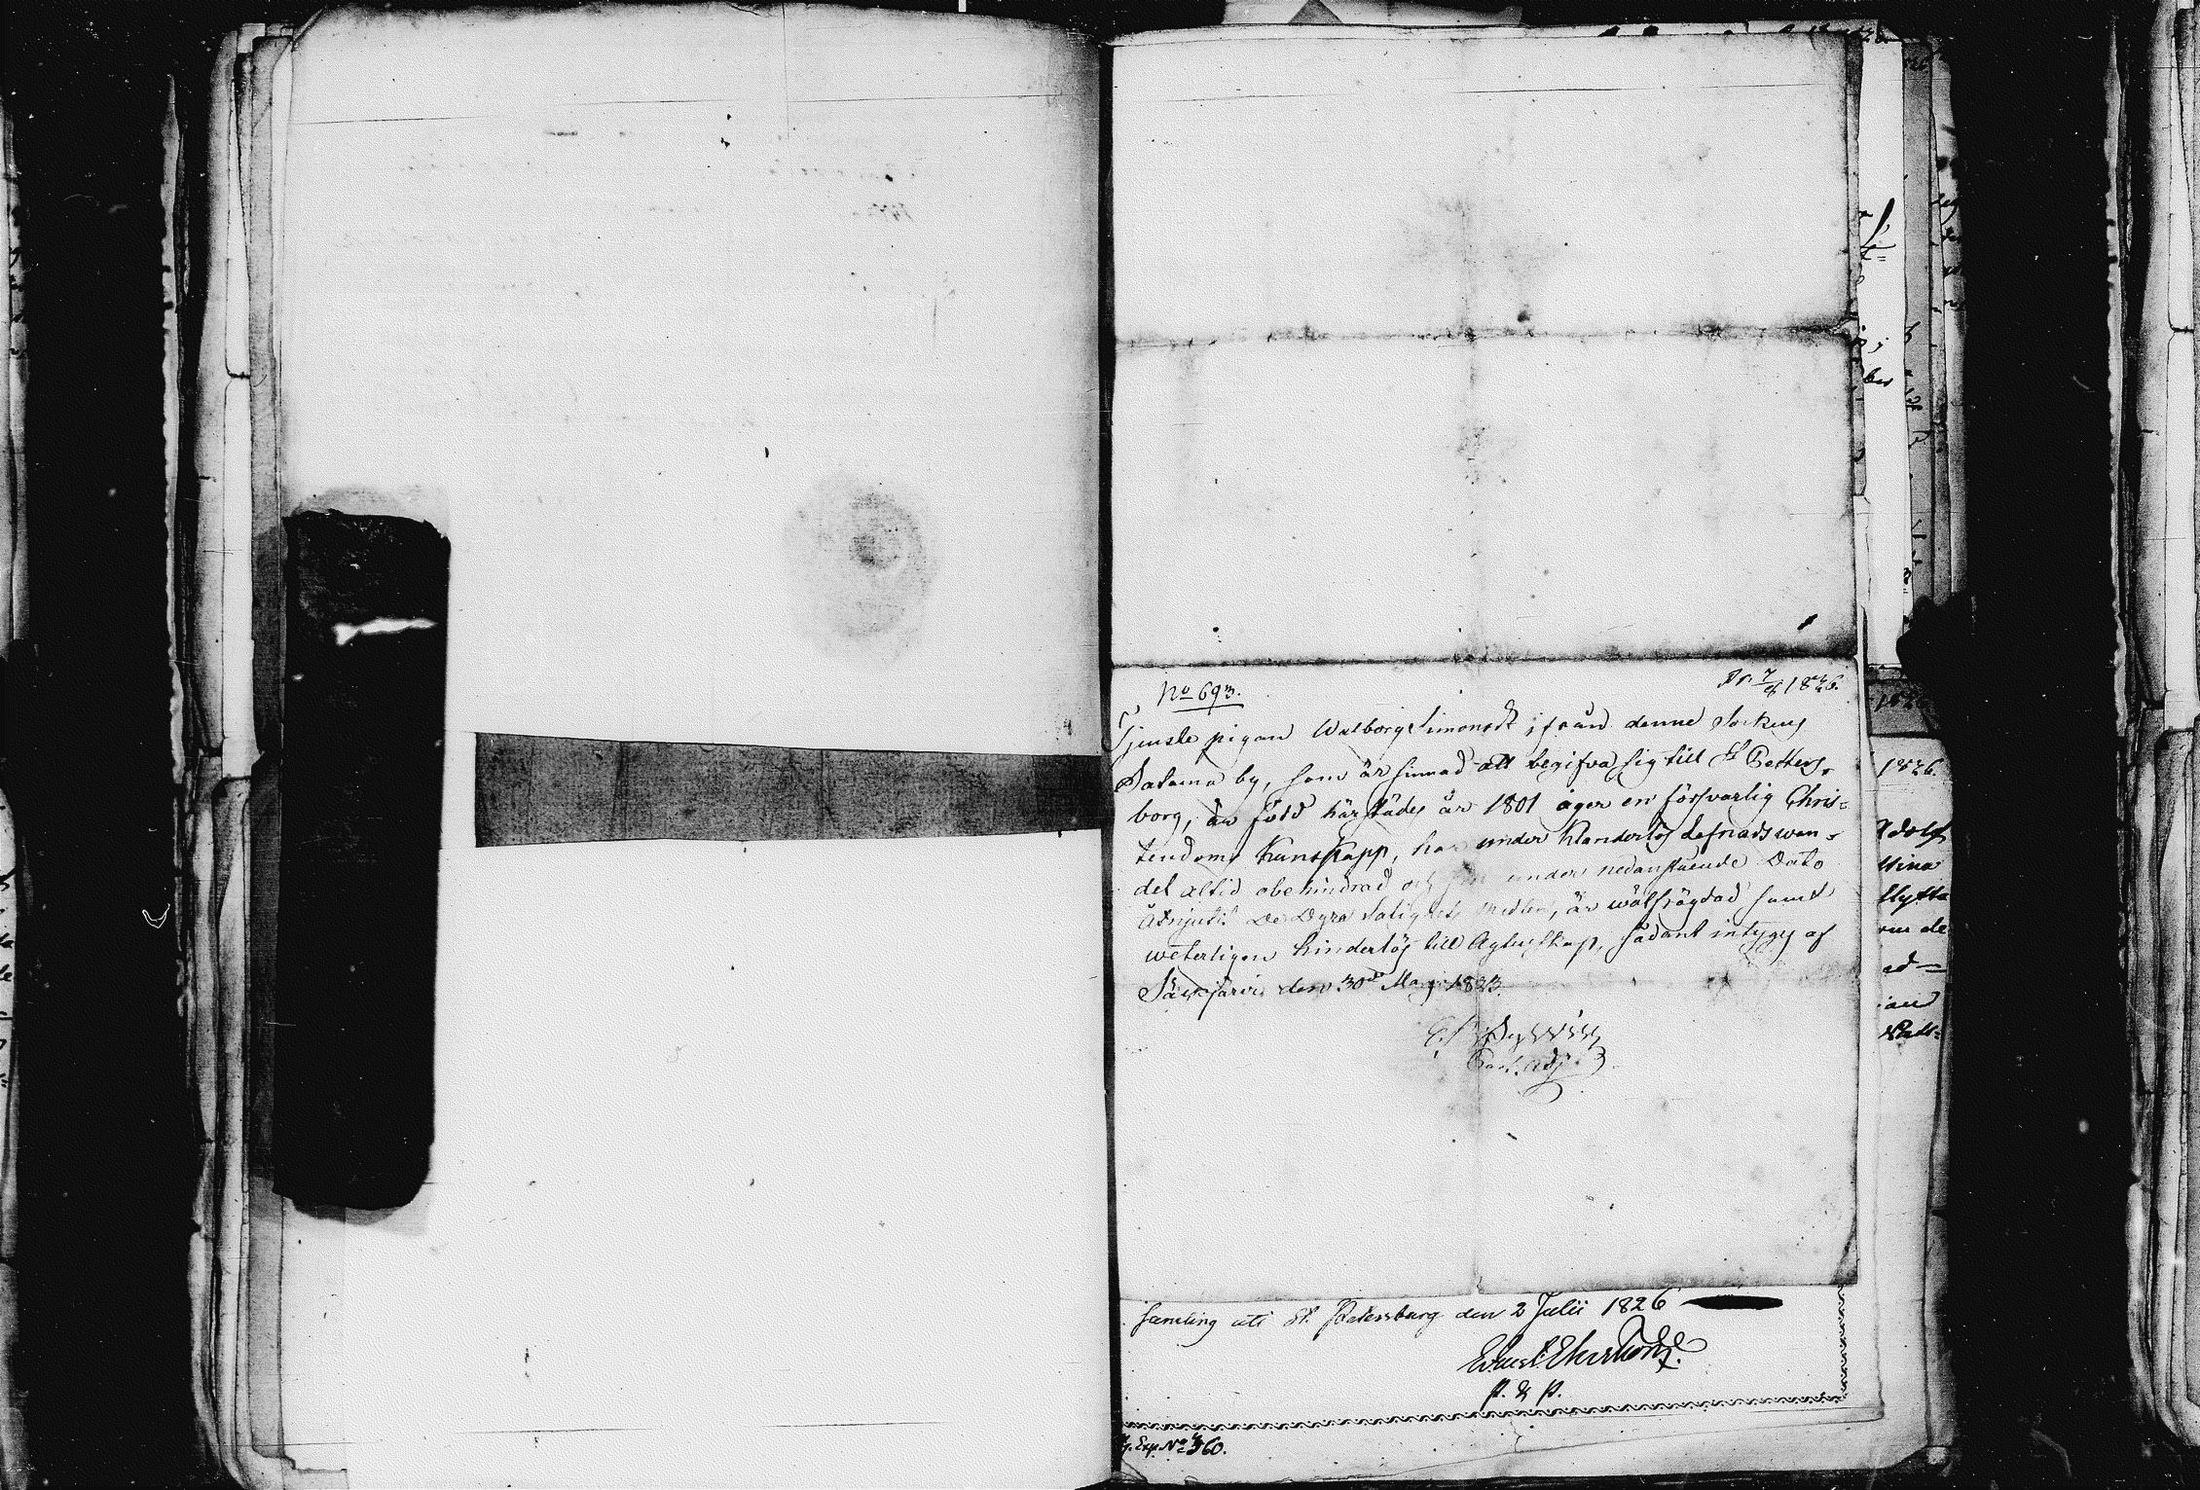 No 693.
Pr. 7/8 1826.
Tjenste pigan Walborg Simonsdt ifrån denne Sockens
Satama by, som är sinnad att begifva sig till St Petters-
borg, är född härstädes år 1801 äger en försvarlig Chris-
tendoms Kunskapp, har under Klanderlös Lefnads wan-
del altid obehindrad och under nedanstående Dato
Åtnjutit De Dyra Salighets Medlen, är wälfrägdad samt
weterligen hinderlös till Agtenskap, sådant intygas af
Säkjärvi den 30de Maj 1823.
Past. Adj.
samling uti St. Petersburg den 2 Julii 1826
P. & P.
Exp. No 360.
1826.
Adolf
Stina
flytta
om de